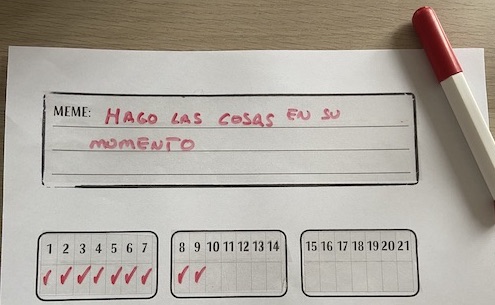 MEME: HAGO LAS COSAS EN SU
MOMENTO
1 2 3 4 5 6 7 8 9 10 11 12 13 14 15 16 17 18 19 20 21
✓ ✓ ✓ ✓ ✓ ✓ ✓ ✓ ✓